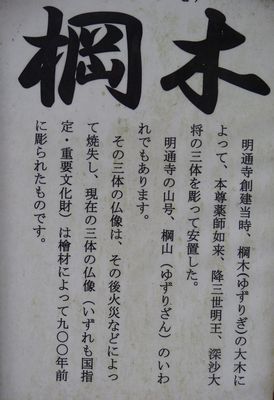 棡木
明通寺創建当時、棡木(ゆずりぎ)の大木に
よって、本尊薬師如来、降三世明王、深沙大
将の三体を彫って安置した。
明通寺の山号、棡山(ゆずりざん)のいわ
れでもあります。
その三体の仏像は、その後火災などによっ
て焼失し、現在の三体の仏像(いずれも国指
定・重要文化財)は檜材によって九〇〇年前
に彫られたものです。